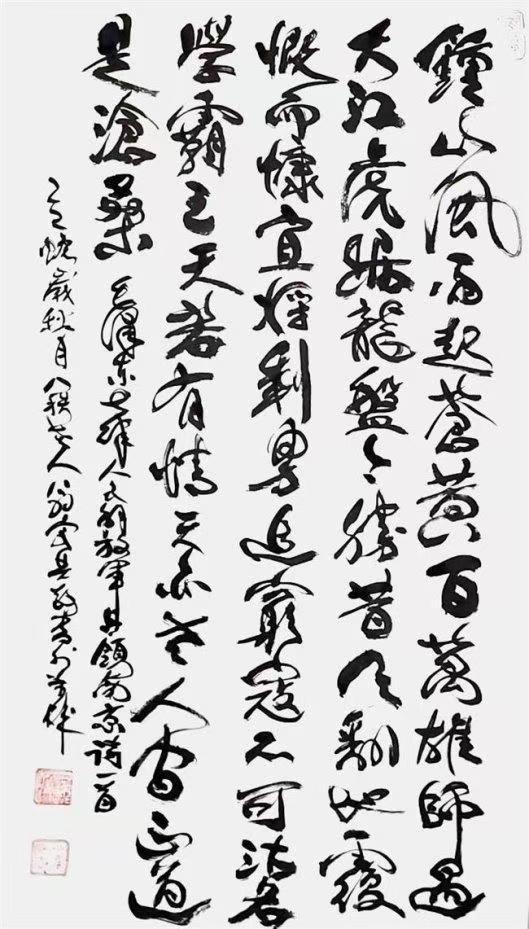 鐘山風雨起蒼黄百萬雄師過
大江虎踞龍盤今勝昔天翻地覆
慨而慷宜將剩勇追窮寇不可沽名
學霸王天若有情天亦老人间正道
是滄桑 毛澤东七律人民解放軍占領南京诗一首
蛇歲秋月八秩老人